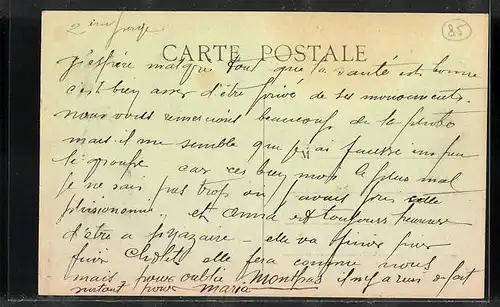 2ème page
85
CARTE POSTALE
J'espère malgré tout que ta santé est bonne
c'est bien assez d'être privé de ses mouvements.
nous vous remercions beaucoup de la photo
mais il me semble que j'ai faussé un peu
le groupe car ces bien moi la plus mal
je ne sais pas trop où j'avais pris
et Anna est toujours heureuse
d'être a St Nazaire - elle va finir par
fuir Cholet elle fera comme nous
mais pour oublié Montfort il n'y a rien à fait
surtout pour Maria